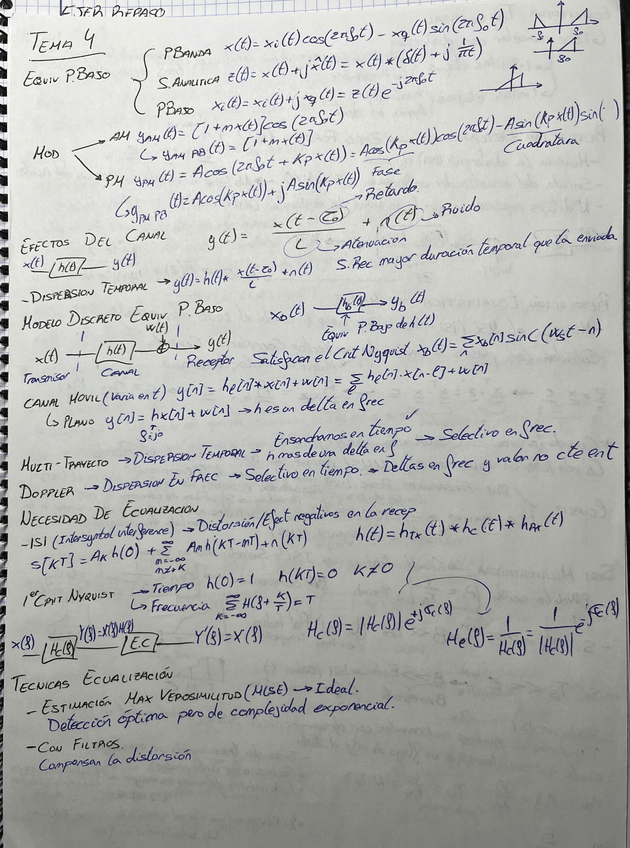 REPASO
TEMA 4
EQUIV P.BASO
PBANDA x(t)=xi(t)cos(2πf₀t) - xq(t)sin(2πf₀t)
S.ANALITICA z(t)=x(t)+jx̂(t)=x(t)*(δ(t)+j 1/πt)
PBASO xₗ(t)=xi(t)+jxq(t)=z(t)e^-j2πf₀t
-f₀ f₀
f₀
MOD
AM yAM(t)=[1+mx(t)]cos(2πf₀t)
↳ yAM PB(t)=[1+mx(t)]
PM yPM(t)=Acos(2πf₀t+Kpx(t))=Acos(Kpx(t))cos(2πf₀t)-Asin(Kpx(t))sin( )
Fase Cuadratura
↳ yPM PB(t)=Acos(Kpx(t))+jAsin(Kpx(t))
EFECTOS DEL CANAL y(t)= x(t-τ₀)/L + n(t)
→Retardo.
→Ruido
→Atenuacion
x(t) h(t) y(t)
-DISPERSION TEMPORAL → y(t)=h(t)* x(t-τ₀)/L +n(t) S.Rec mayor duración temporal que la enviada
MODELO DISCRETO EQUIV P.BASO xb(t) → hb(t) → yb(t)
Equiv P.Baso de h(t)
w(t)
x(t) → h(t) → ⊕ → y(t)
Transmisor CANAL Receptor
Satisfacen el Crit Nyquist xb(t)=Σn xb[n]sinC(Wst-n)
CANAL MOVIL (Varia en t) y[n]=hℓ[n]*x[n]+w[n]=Σℓ hℓ[n]·x[n-ℓ]+w[n]
↳ PLANO y[n]=hx[n]+w[n] → h es un delta en frec
fijo
MULTI-TRAYECTO → DISPERSION TEMPORAL → Ensanchamos en tiempo ✓ → Selectivo en frec.
h mas de una delta en f
DOPPLER → DISPERSION EN FREC → Selectivo en tiempo. → Deltas en frec y valor no cte en t
NECESIDAD DE ECUALIZACION
-ISI (Intersymbol interference) → Distorsión/Efect negativos en la recep
s[KT]=AK h(0) + Σ m=-∞ m≠K ∞ Am h(KT-mT)+n(KT) h(t)=hTX(t)*hc(t)*hRX(t)
1er CRIT NYQUIST → Tiempo h(0)=1 h(KT)=0 K≠0
↳ Frecuencia Σ K=-∞ ∞ H(f+K/T)=T
X(f) Hc(f) Y(f)=X(f)H(f) E.C Y'(f)=X(f) Hc(f)=|Hc(f)|e^+jθc(f) He(f)=1/Hc(f)=1/|Hc(f)| e^-jθc(f)
TECNICAS ECUALIZACIÓN
- ESTIMACIÓN MAX VEROSIMILITUD (MLSE) → Ideal.
Detección óptima pero de complejidad exponencial.
- CON FILTROS.
Compensan la distorsión